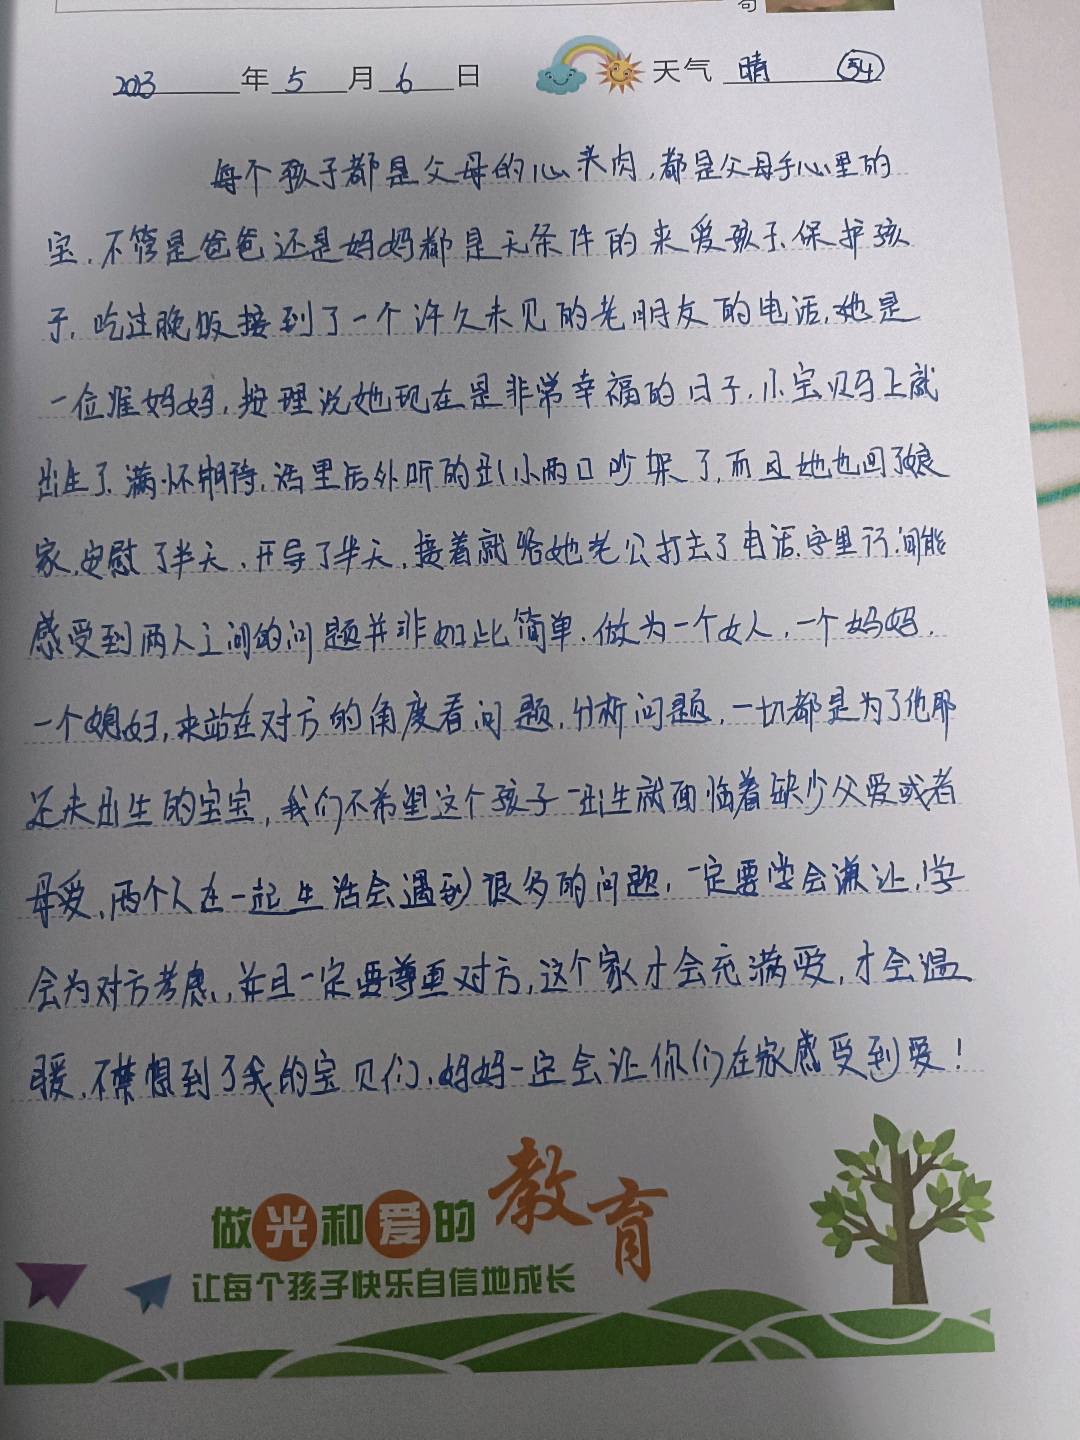 句
2023年5月6日 天气 晴 54
每个孩子都是父母的心头肉,都是父母手心里的
宝,不管是爸爸还是妈妈都是无条件的来爱孩子、保护孩
子,吃过晚饭接到了一个许久未见的老朋友的电话,她是
一位准妈妈,按理说她现在是非常幸福的日子,小宝贝马上就
出生了,满怀期待,话里话外听的出小两口吵架了,而且她也回了娘
家,安慰了半天、开导了半天,接着就给她老公打去了电话,字里行间能
感受到两人之间的问题并非如此简单,做为一个女人,一个妈妈,
一个媳妇,来站在对方的角度看问题,分析问题,一切都是为了他那
还未出生的宝宝,我们不希望这个孩子一出生就面临着缺少父爱或者
母爱,两个人在一起生活会遇到很多的问题,一定要学会谦让,学
会为对方考虑,并且一定要尊重对方,这个家才会充满爱,才会温
暖,不禁想到了我的宝贝们,妈妈一定会让你们在家感受到爱!
做光和爱的教育
让每个孩子快乐自信地成长